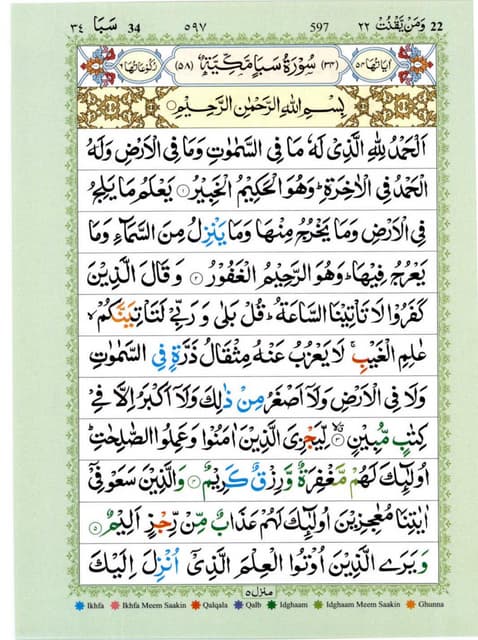 ٣٤ سَبَا 34 ٥٩٧ 597 وَمَنْ يَّقْنُتْ ٢٢ 22
اٰيَاتُهَا ٥٤ (٣٤) سُوْرَةُ سَبَاٍ مَكِّيَّةٌ (٥٨) رُكُوْعَاتُهَا ٦
بِسْمِ اللّٰهِ الرَّحْمٰنِ الرَّحِيْمِ
اَلْحَمْدُ لِلّٰهِ الَّذِىْ لَهٗ مَا فِى السَّمٰوٰتِ وَمَا فِى الْاَرْضِ وَلَهُ
الْحَمْدُ فِى الْاٰخِرَةِ ؕ وَهُوَ الْحَكِيْمُ الْخَبِيْرُ ۝١ يَعْلَمُ مَا يَلِجُ
فِى الْاَرْضِ وَمَا يَخْرُجُ مِنْهَا وَمَا يَنْزِلُ مِنَ السَّمَآءِ وَمَا
يَعْرُجُ فِيْهَا ؕ وَهُوَ الرَّحِيْمُ الْغَفُوْرُ ۝٢ وَقَالَ الَّذِيْنَ
كَفَرُوْا لَا تَاْتِيْنَا السَّاعَةُ ؕ قُلْ بَلٰى وَرَبِّىْ لَتَاْتِيَنَّكُمْ ۙ
عٰلِمِ الْغَيْبِ ۚ لَا يَعْزُبُ عَنْهُ مِثْقَالُ ذَرَّةٍ فِى السَّمٰوٰتِ
وَلَا فِى الْاَرْضِ وَلَاۤ اَصْغَرُ مِنْ ذٰلِكَ وَلَاۤ اَكْبَرُ اِلَّا فِىْ
كِتٰبٍ مُّبِيْنٍ ۝٣ لِّيَجْزِىَ الَّذِيْنَ اٰمَنُوْا وَعَمِلُوا الصّٰلِحٰتِ ؕ
اُولٰٓئِكَ لَهُمْ مَّغْفِرَةٌ وَّرِزْقٌ كَرِيْمٌ ۝٤ وَالَّذِيْنَ سَعَوْ فِىْۤ
اٰيٰتِنَا مُعٰجِزِيْنَ اُولٰٓئِكَ لَهُمْ عَذَابٌ مِّنْ رِّجْزٍ اَلِيْمٌ ۝٥
وَيَرَى الَّذِيْنَ اُوْتُوا الْعِلْمَ الَّذِىْۤ اُنْزِلَ اِلَيْكَ
منزل ٥
Ikhfa Ikhfa Meem Saakin Qalqala Qalb Idghaam Idghaam Meem Saakin Ghunna